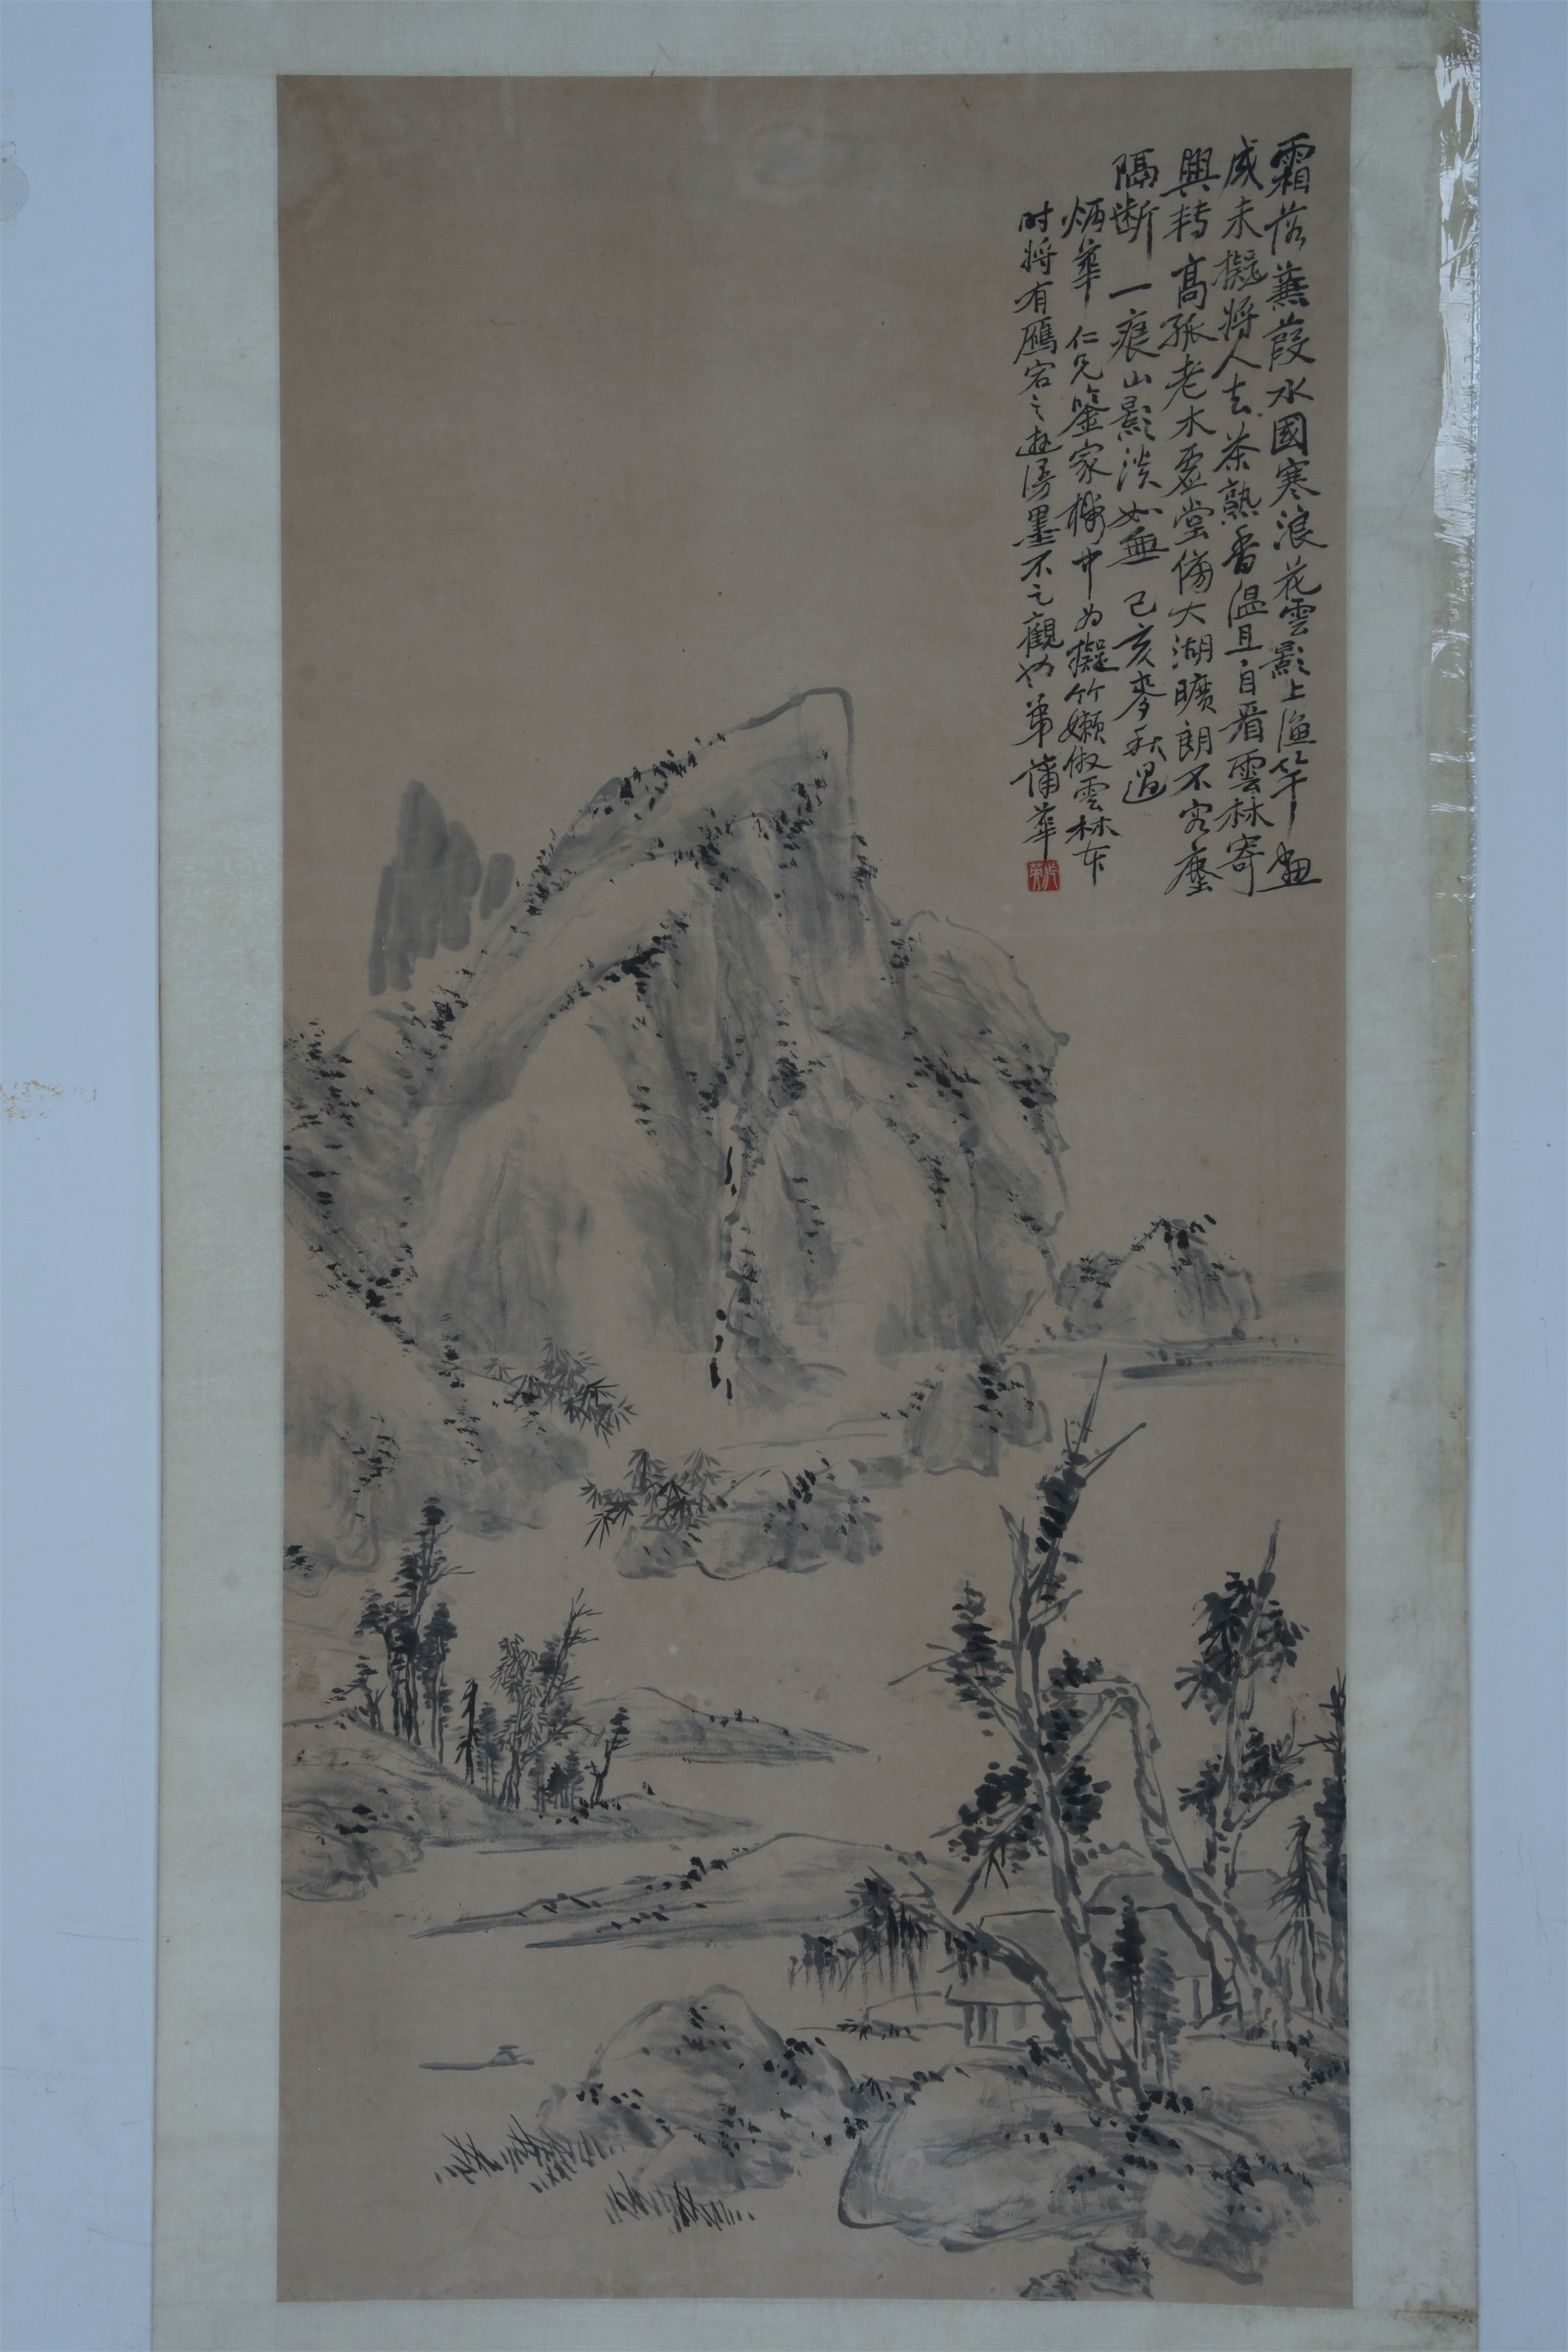 霜落蒹葭水國寒浪花雲影上漁竿畫
成未擬將人去茶熟香溫且自看雲林寄
興轉高孤老木虛堂傍大湖曠朗不容塵
隔斷一痕山影淡如無 己亥麥秋過
炳華仁兄鑒家機中為擬竹嬾仿雲林本
时將有鴈宕之遊漫墨不足觀也弟蒲華